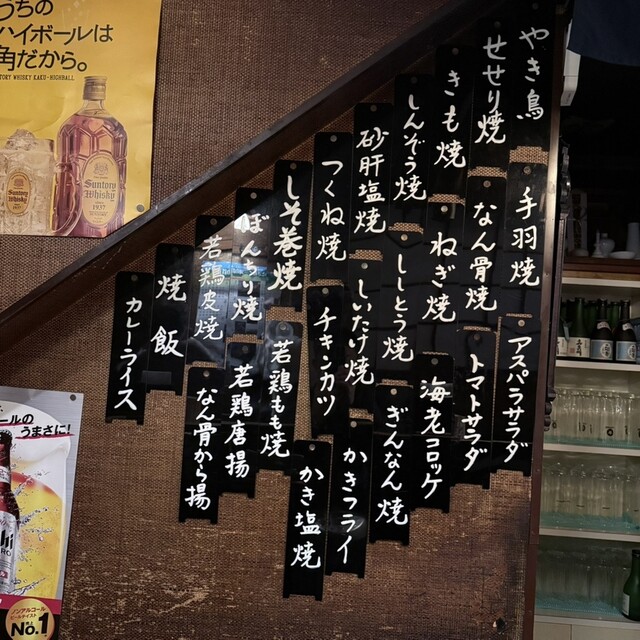 やき鳥
せせり焼
きも焼
しんぞう焼
砂肝塩焼
つくね焼
しそ巻焼
ぼんちり焼
若鶏皮焼
焼飯
カレーライス
手羽焼
なん骨焼
ねぎ焼
ししとう焼
しいたけ焼
チキンカツ
若鶏もも焼
若鶏唐揚
なん骨から揚
アスパラサラダ
トマトサラダ
海老コロッケ
ぎんなん焼
かきフライ
かき塩焼
うちの
ハイボールは
角だから。
SUNTORY WHISKY KAKU-HIGHBALL
Suntory
Whisky
1937
ールの
うまさに!
ノンアルコール
ビールテイスト
No.1